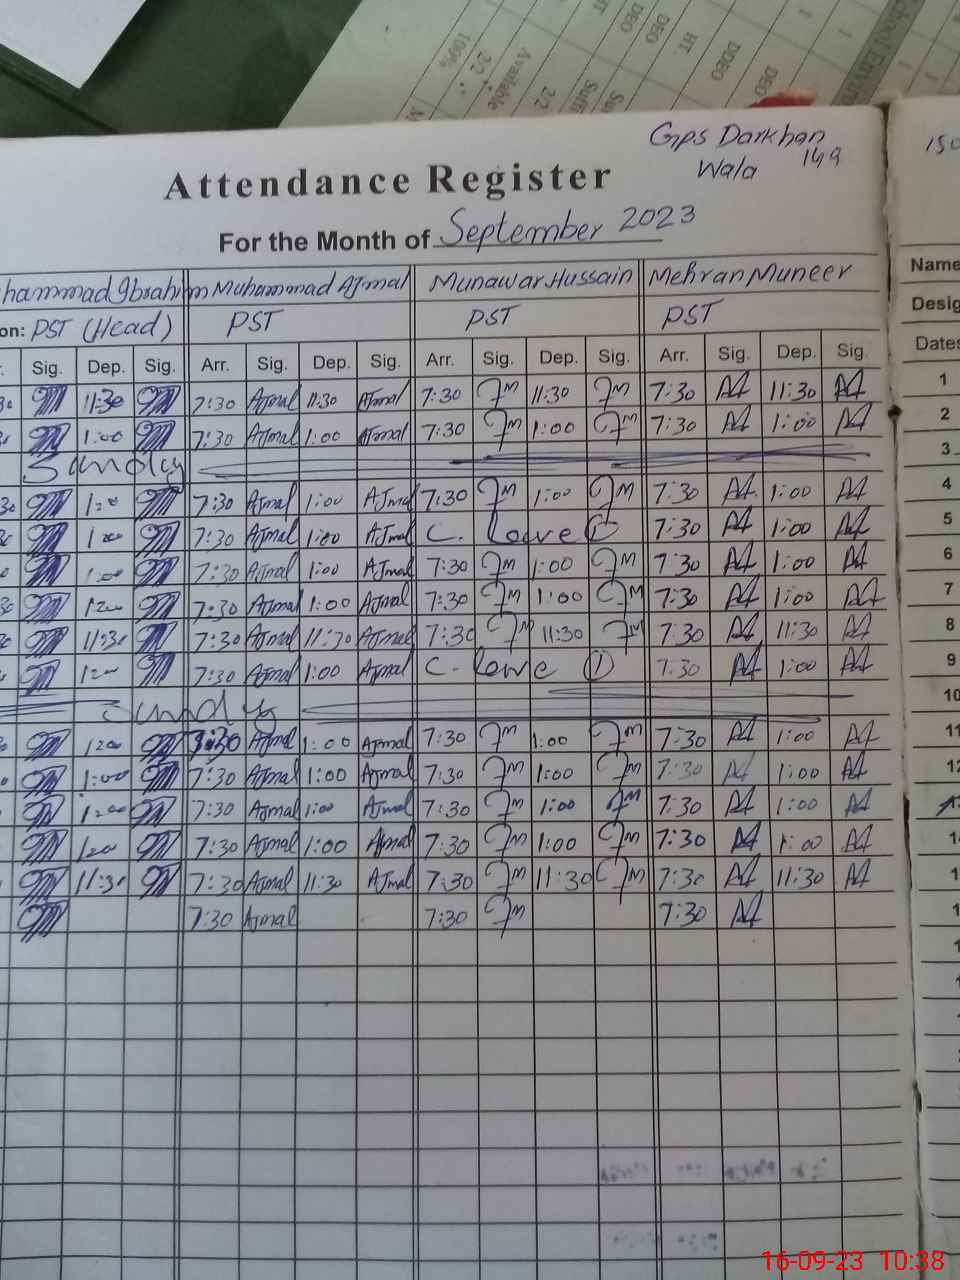 100%
2/2
Available
2/2
DEO
DEO
HT.
DDEO
DEO
School
Gps Darkhan
Wala 149
Attendance Register
For the Month of September 2023
hammad Ibrahim Muhammad AJmal Munawar Hussain Mehran Muneer
on: PST (Head) PST PST PST
Sig. Dep. Sig. Arr. Sig. Dep. Sig. Arr. Sig. Dep. Sig. Arr. Sig. Dep. Sig.
11:30 7:30 AJmal 11:30 AJmal 7:30 11:30 7:30 11:30
1:00 7:30 AJmal 1:00 AJmal 7:30 1:00 7:30 1:00
Sunday
1:00 7:30 AJmal 1:00 AJmal 7:30 1:00 7:30 1:00
1:00 7:30 AJmal 1:00 AJmal C. leave 7:30 1:00
1:00 7:30 AJmal 1:00 AJmal 7:30 1:00 7:30 1:00
1:00 7:30 AJmal 1:00 AJmal 7:30 1:00 7:30 1:00
11:30 7:30 AJmal 11:30 AJmal 7:30 11:30 7:30 11:30
1:00 7:30 AJmal 1:00 AJmal C. leve ① 7:30 1:00
Sunday
1:00 7:30 AJmal 1:00 AJmal 7:30 1:00 7:30 1:00
1:00 7:30 AJmal 1:00 AJmal 7:30 1:00 7:30 1:00
1:00 7:30 AJmal 1:00 AJmal 7:30 1:00 7:30 1:00
1:00 7:30 AJmal 1:00 AJmal 7:30 1:00 7:30 1:00
11:30 7:30 AJmal 11:30 AJmal 7:30 11:30 7:30 11:30
7:30 AJmal 7:30 7:30
Name
Desig
Dates
1
2
3
4
5
6
7
8
9
10
11
12
16-09-23 10:38